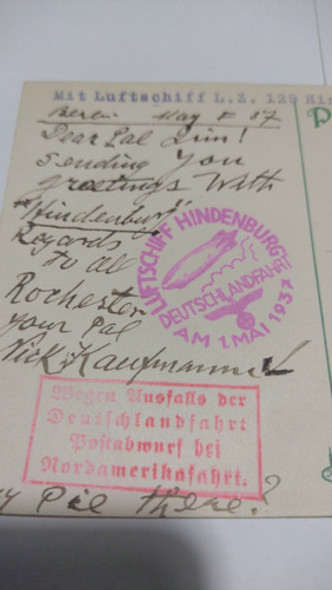 Mit Luftschiff L.Z. 129 Hin
Berlin May 8 37
Dear Pal Jim!
Sending You
greetings With
"Hindenburg"
Regards
to all
Rochester
your Pal
Nick Kaufmann
LUFTSCHIFF HINDENBURG
DEUTSCHLANDFAHRT
AM 1. MAI 1937
Wegen Ausfalls der
Deutschlandfahrt
Postabwurf bei
Nordamerikafahrt.
Pie there?